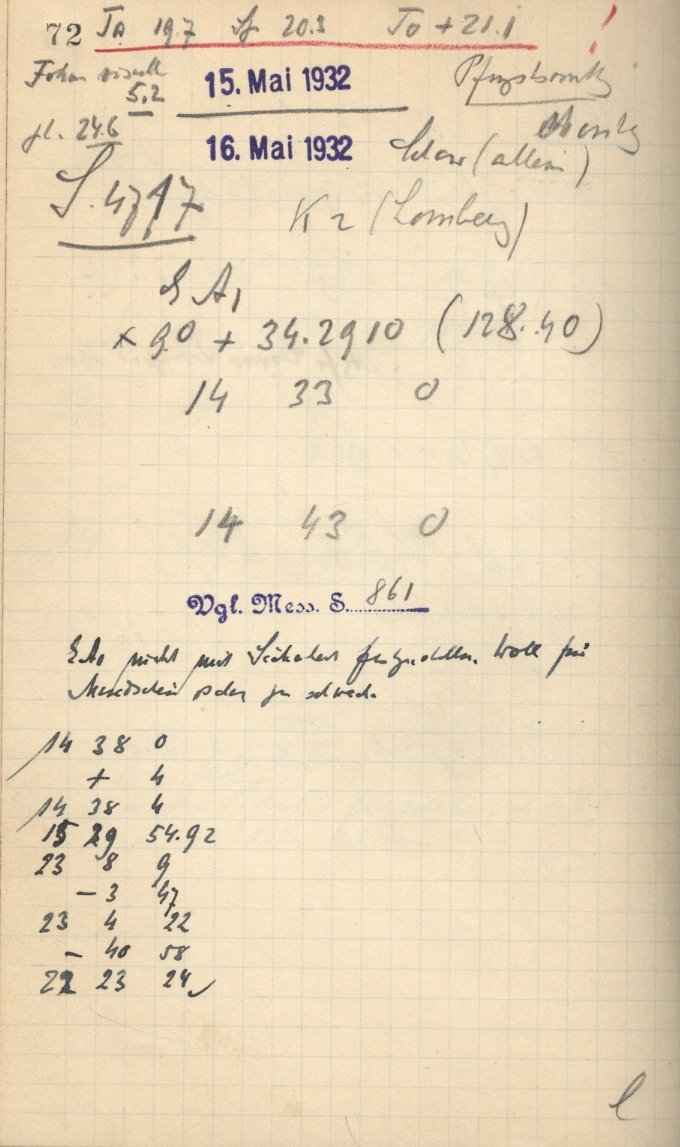 72 Ta 19.7 Sf 20.3 To + 21.1 !
Fokus visuell
5.2
15. Mai 1932
gl. 24.6
16. Mai 1932 klar (allein)
S. 4717
K 2 (
E A1
× 90 + 34.2910 (128.40)
14 33 0
14 43 0
Vgl. Mess. S. 861
EA1 nicht mit Sicherheit Wohl für
Mondschein oder zu schwach.
14 38 0
+ 4
14 38 4
15 29 54.92
23 8 9
- 3 47
23 4 22
- 40 58
22 23 24